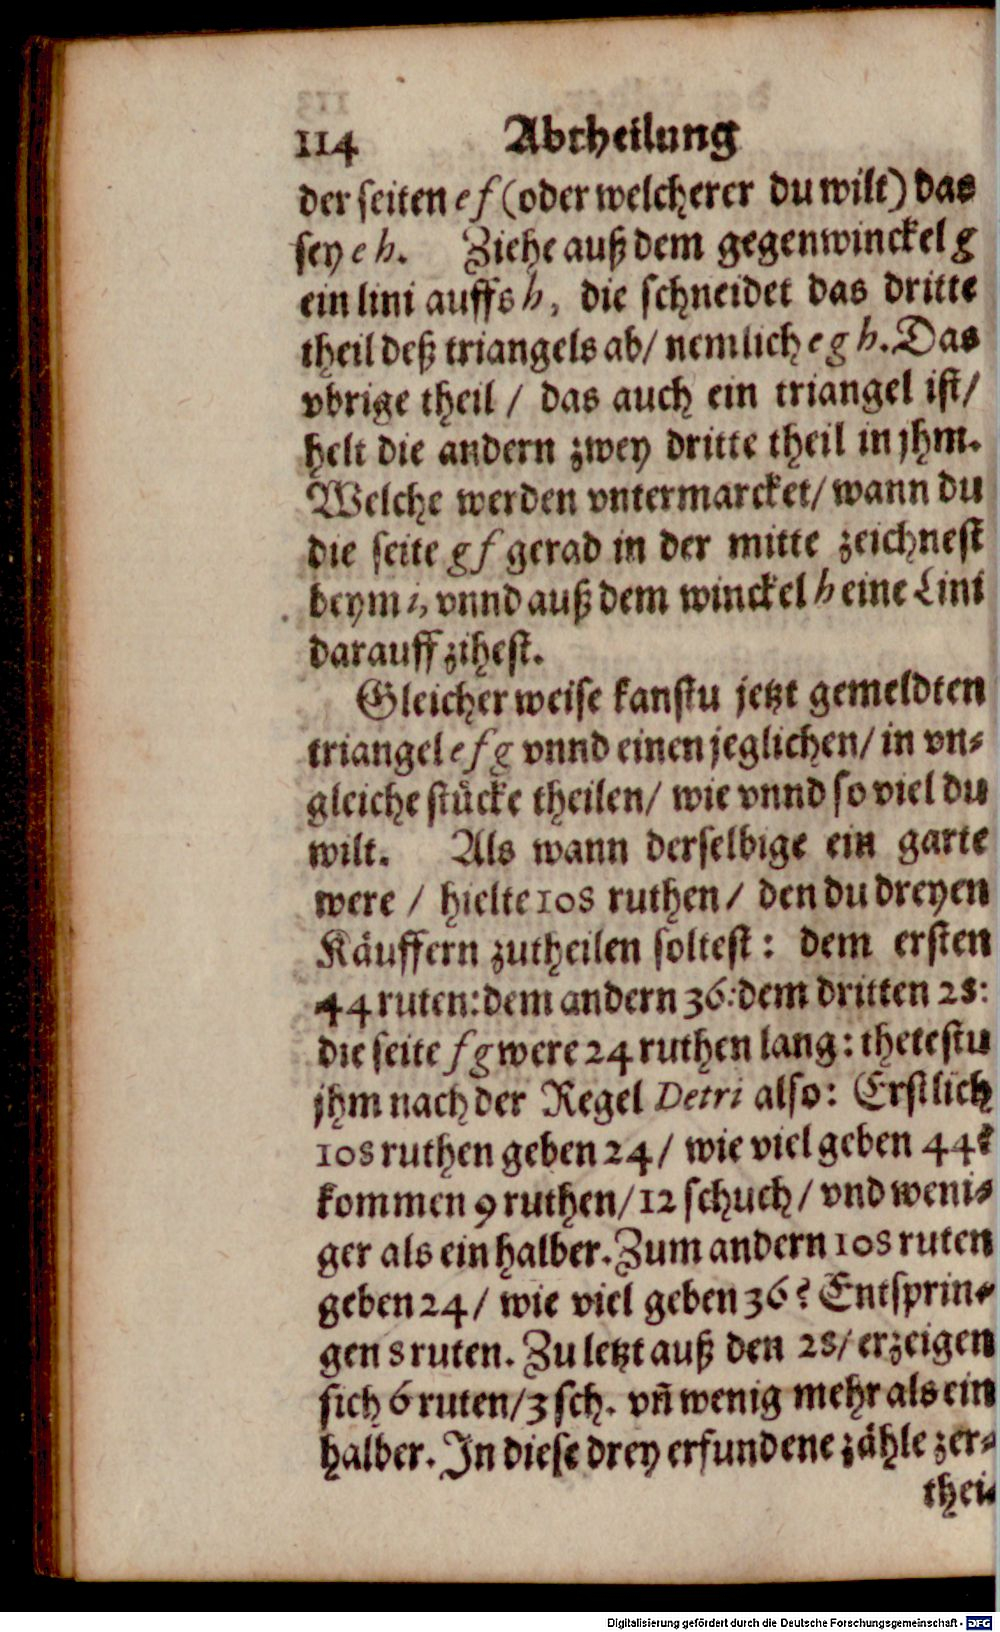 114 Abtheilung
der seiten e f (oder welcherer du wilt) das
sey e h. Ziehe auß dem gegenwinckel g
ein lini auffs h, die schneidet das dritte
theil deß triangels ab/ nemlich e g h. Das
vbrige theil / das auch ein triangel ist/
helt die andern zwey dritte theil in jhm.
Welche werden vntermarcket/ wann du
die seite g f gerad in der mitte zeichnest
beym i, vnnd auß dem winckel h eine Lini
darauff zihest.
Gleicher weise kanstu jetzt gemeldten
triangel e f g vnnd einen jeglichen/ in vn-
gleiche stücke theilen/ wie vnnd so viel du
wilt. Als wann derselbige ein garte
were / hielte 108 ruthen/ den du dreyen
Käuffern zutheilen soltest: dem ersten
44 ruten: dem andern 36: dem dritten 28:
die seite f g were 24 ruthen lang: thetestu
jhm nach der Regel Detri also: Erstlich
108 ruthen geben 24/ wie viel geben 44?
kommen 9 ruthen/ 12 schuch/ vnd weni-
ger als ein halber. Zum andern 108 ruten
geben 24/ wie viel geben 36? Entsprin-
gen 8 ruten. Zu letzt auß den 28/ erzeigen
sich 6 ruten/ 3 sch. vñ wenig mehr als ein
halber. In diese drey erfundene zähle zer-
thei-
Digitalisierung gefördert durch die Deutsche Forschungsgemeinschaft - DFG